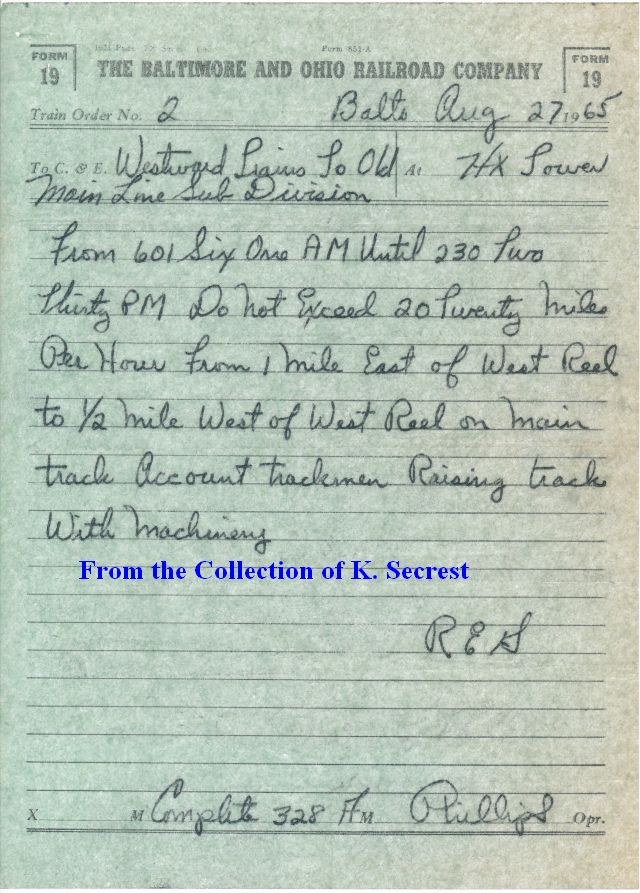 Form 851-A
FORM 19
THE BALTIMORE AND OHIO RAILROAD COMPANY
FORM 19
Train Order No. 2 Balto Aug 27 1965
To C. & E. Westward Trains To Old At HX Tower
Main Line Sub Division
From 601 Six One AM Until 230 Two
Thirty PM Do Not Exceed 20 Twenty Miles
Per Hour From 1 Mile East of West Reel
to 1/2 Mile West of West Reel on Main
track Account trackmen Raising track
With Machinery
From the Collection of K. Secrest
R E S
X M Complete 328 A M Phillips Opr.